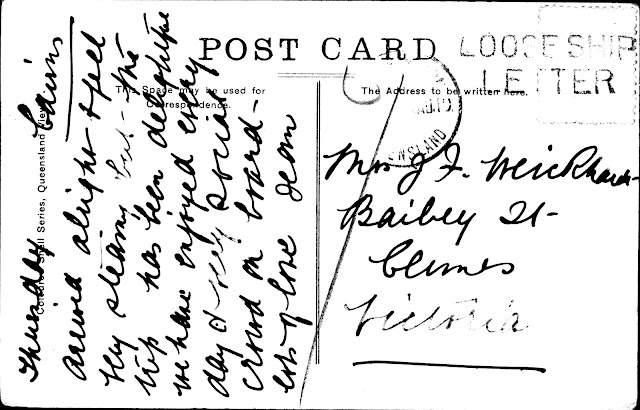 POST CARD
LOOSE SHIP
LETTER
This Space may be used for
Correspondence.
The Address to be written here.
Thursday Cairns
arrived alright & feel
very steamy but the
trip has been delightful
we have enjoyed every
day & very social
crowd on board-
lots of love Jean
Mrs J. F. Weickhardt
Bailey St-
Clunes
Victoria
Shell Series, Queensland Views